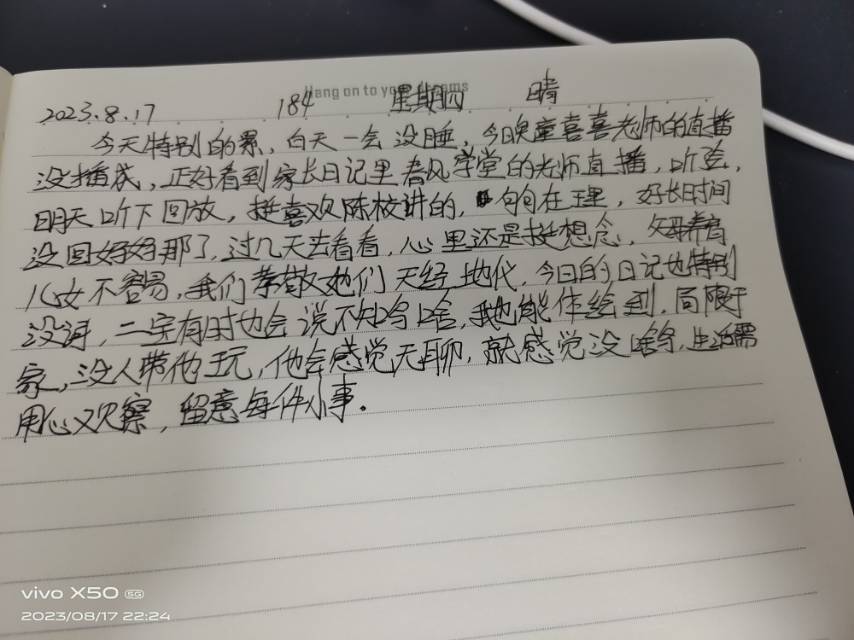 Hang on to your dreams
2023.8.17 184 星期四 晴
今天特别的累，白天一会没睡，今晚童喜喜老师的直播
没播成，正好看到家长日记里春风学堂的老师直播，听会，
明天听下回放，挺喜欢陈校讲的，句句在理，好长时间
没回好好那了，过几天去看看，心里还是挺想念，父母养育
儿女不容易，我们孝敬她们天经地义，今日的日记也特别
没词，二宝有时也会说不知写啥，我也能体会到，局限于
家，没人带他玩，他会感觉无聊，就感觉没啥写，生活需
用心观察，留意每件小事。
vivo X50 5G
2023/08/17 22:24